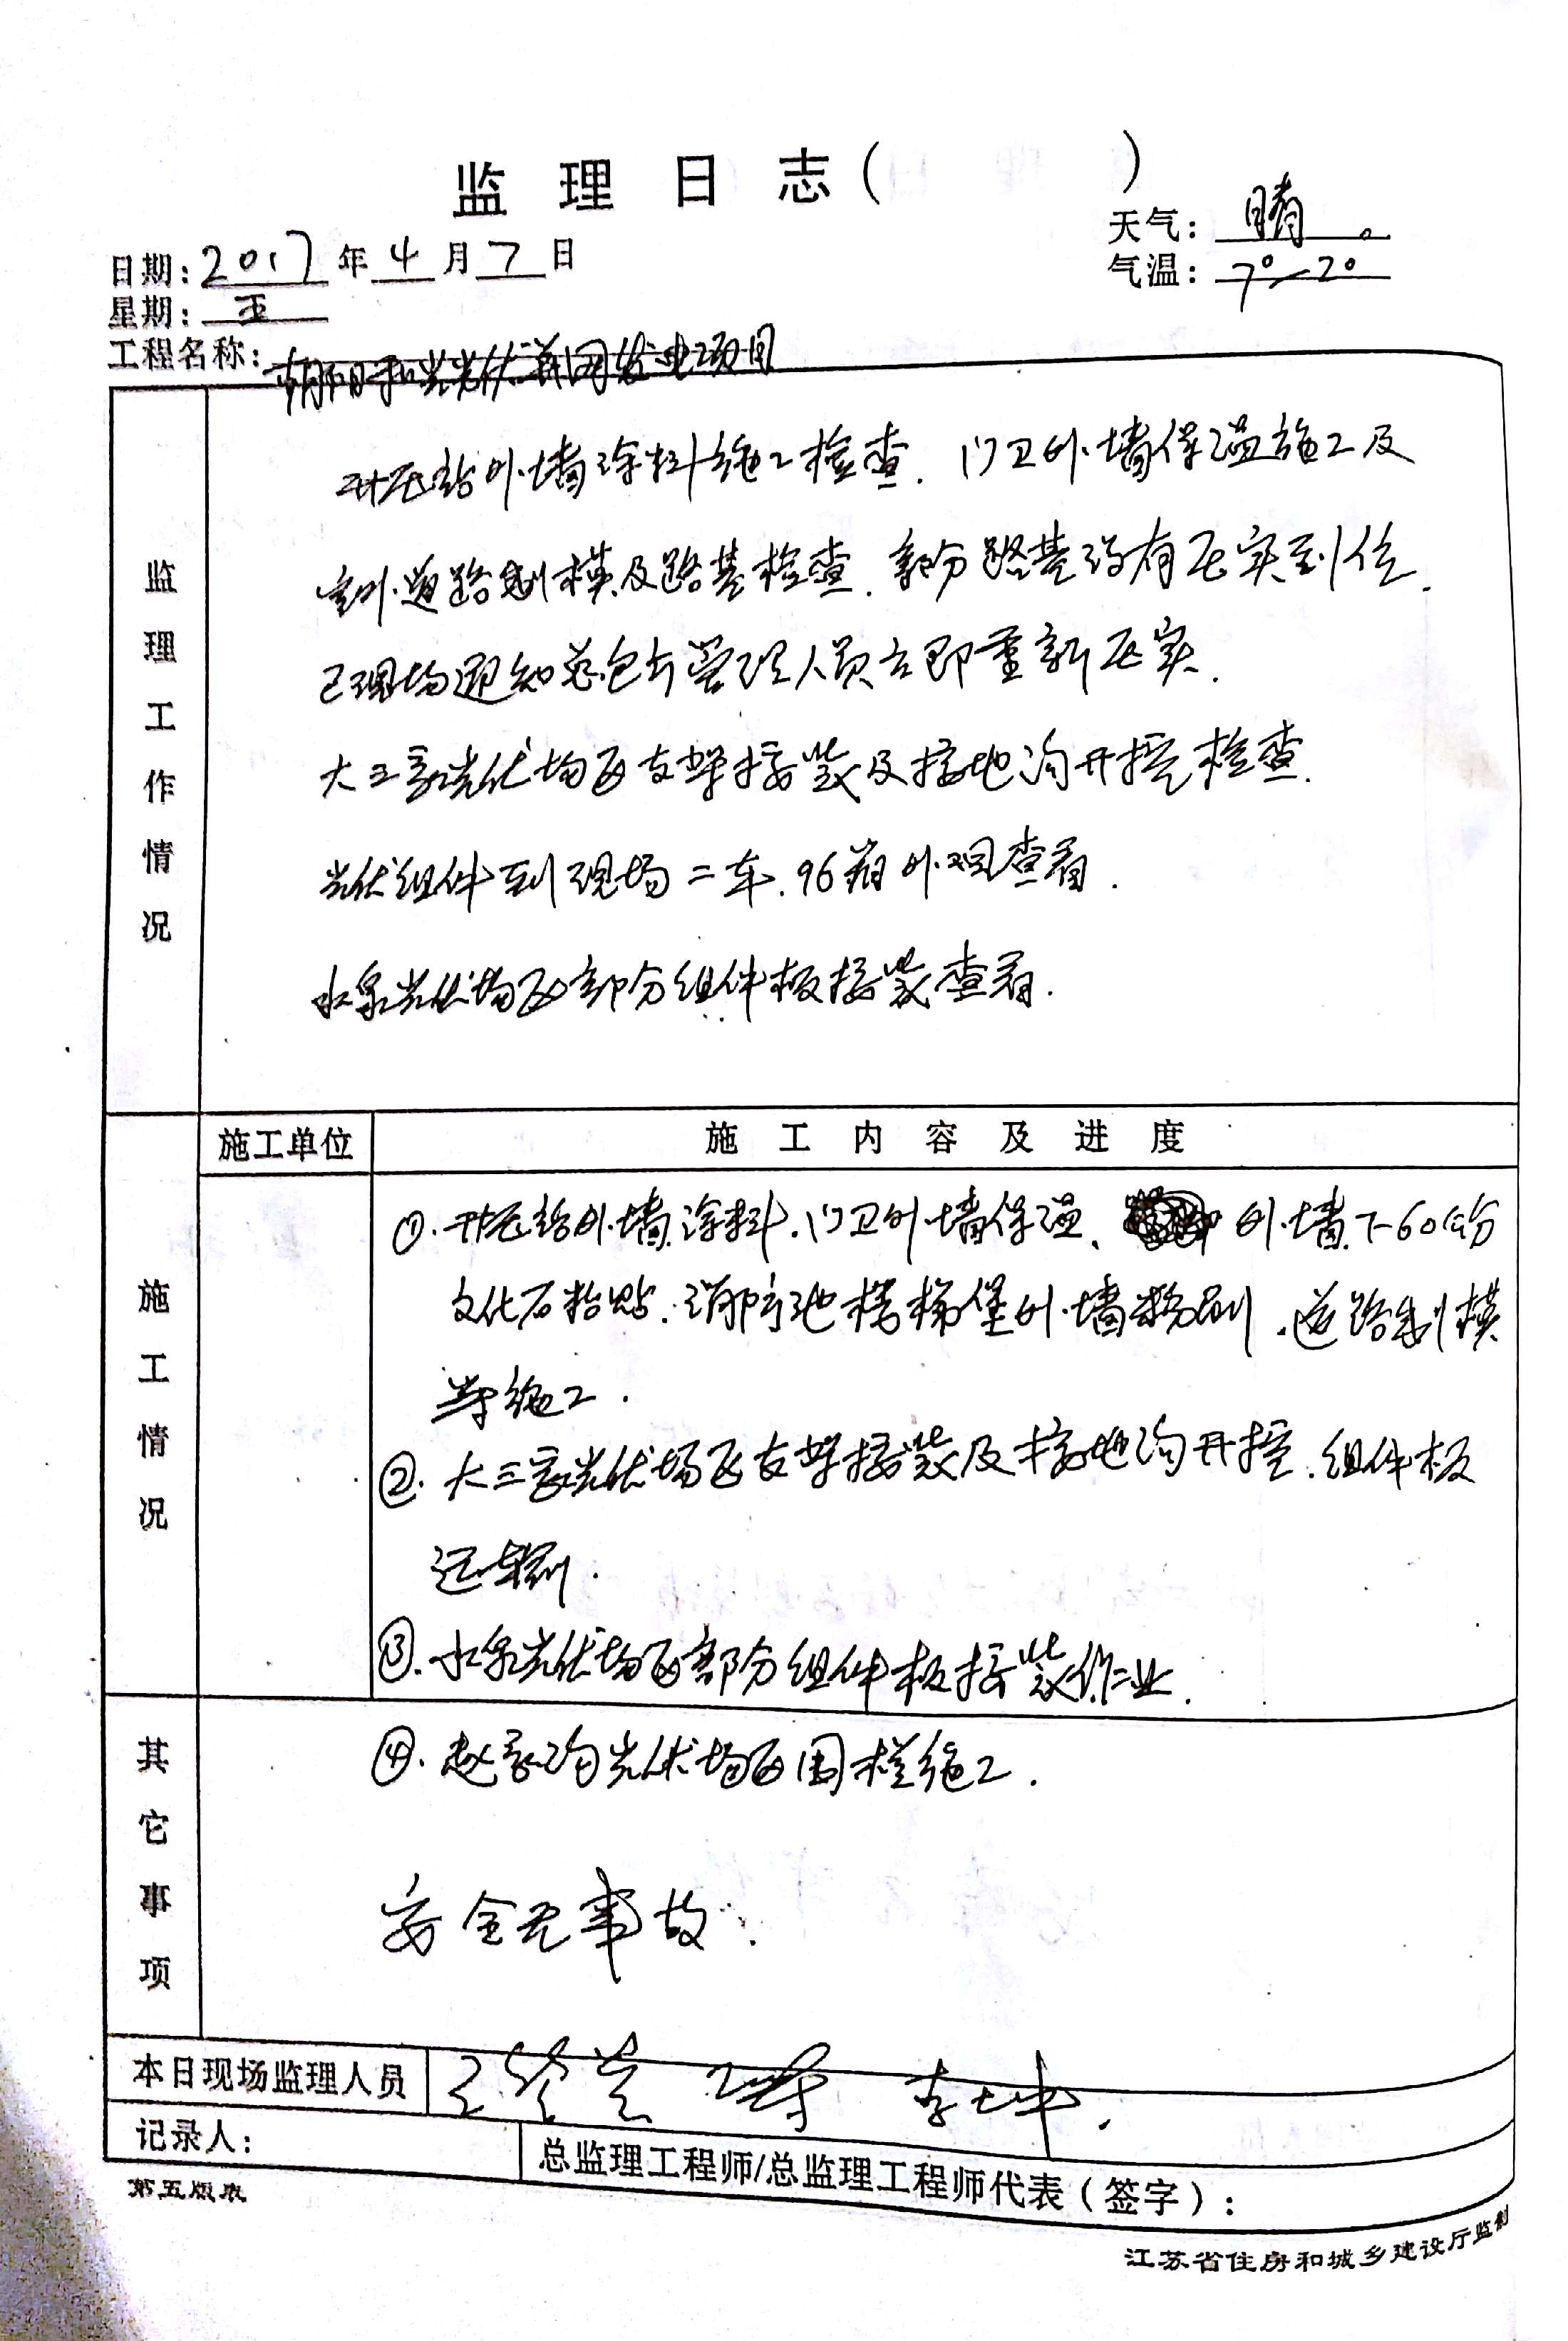 监理日志(　　　)
天气：晴。
日期：2017年4月7日
气温：7°～20
星期：五
工程名称：朝阳和光光伏并网发电项目
监理工作情况
升压站外墙涂料施工检查．门卫外墙保温施工及
室外道路制模及路基检查．部分路基没有压实到位．
已现场通知总包方管理人员立即重新压实．
大三家光伏场区支架按装及接地沟开挖检查．
光伏组件到现场二车．96箱外观查看．
水泉光伏场区部分组件板按装查看．
施工情况
施工单位 施工内容及进度
①．升压站外墙涂料．门卫外墙保温、外墙下60公分
文化石粘贴．消防池楼梯堡外墙粉刷．道路制模
等施工．
②．大三家光伏场区支架按装及接地沟开挖．组件板
运到．
③．水泉光伏场区部分组件板按装作业．
其它事项
④．赵家沟光伏场区围栏施工．
安全无事故．
本日现场监理人员 王 李坤．
记录人：
总监理工程师/总监理工程师代表（签字）：
第五版表
江苏省住房和城乡建设厅监制